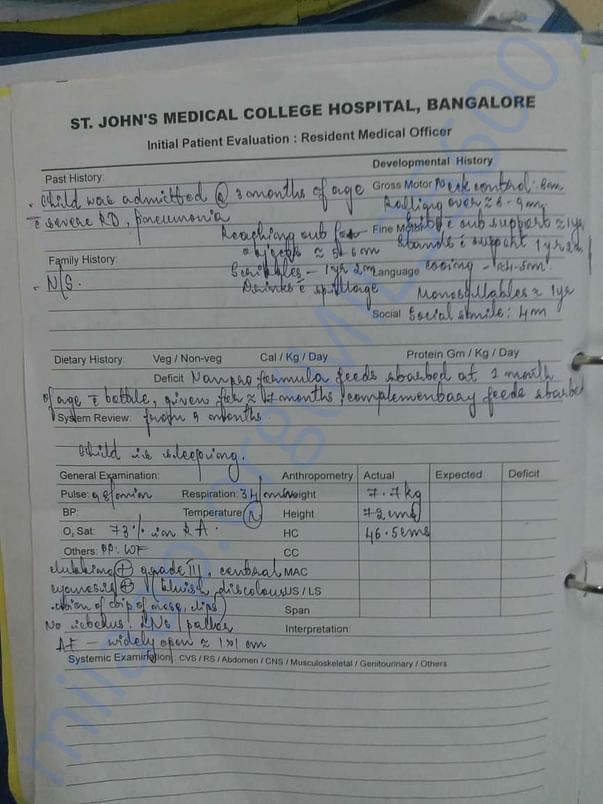 ST. JOHN'S MEDICAL COLLEGE HOSPITAL, BANGALORE
Initial Patient Evaluation : Resident Medical Officer
Past History:
Developmental History
- Child was admitted @ 3 months of age
Gross Motor Neck control: 8m
c̄ severe RD, pneumonia
Rolling over ≈ 8-9m
Reaching out for
Fine Motor Sits c̄ out support ≈ 1yr
objects ≈ 5-6m
Stands c̄ support 1yr 2m
Family History:
Scribbles - 1yr 2m
Language cooing -
- N/S.
Drinks c̄ spillage
Monosyllables ≈ 1yr
Social Social smile: 4m
Dietary History: Veg / Non-veg Cal / Kg / Day Protein Gm / Kg / Day
Deficit Nanpro formula feeds started at 1 month
of age c̄ bottle, given for ≈ months, complementary feeds started
System Review: from 9 months.
Child is sleeping.
General Examination: Anthropometry Actual Expected Deficit
Pulse: 98/min Respiration: 34/min Weight 7.7kg
BP: Temperature: N Height 72 cms
O₂ Sat: 73% in RA. HC 46.5cms
Others: PP: WF CC
clubbing ⊕ grade III, central MAC
cyanosis ⊕ (bluish discolour US / LS
ation of tip of nose, lips) Span
No icterus, pallor Interpretation:
AF - widely open ≈ 1x1 cm
Systemic Examination: CVS / RS / Abdomen / CNS / Musculoskeletal / Genitourinary / Others